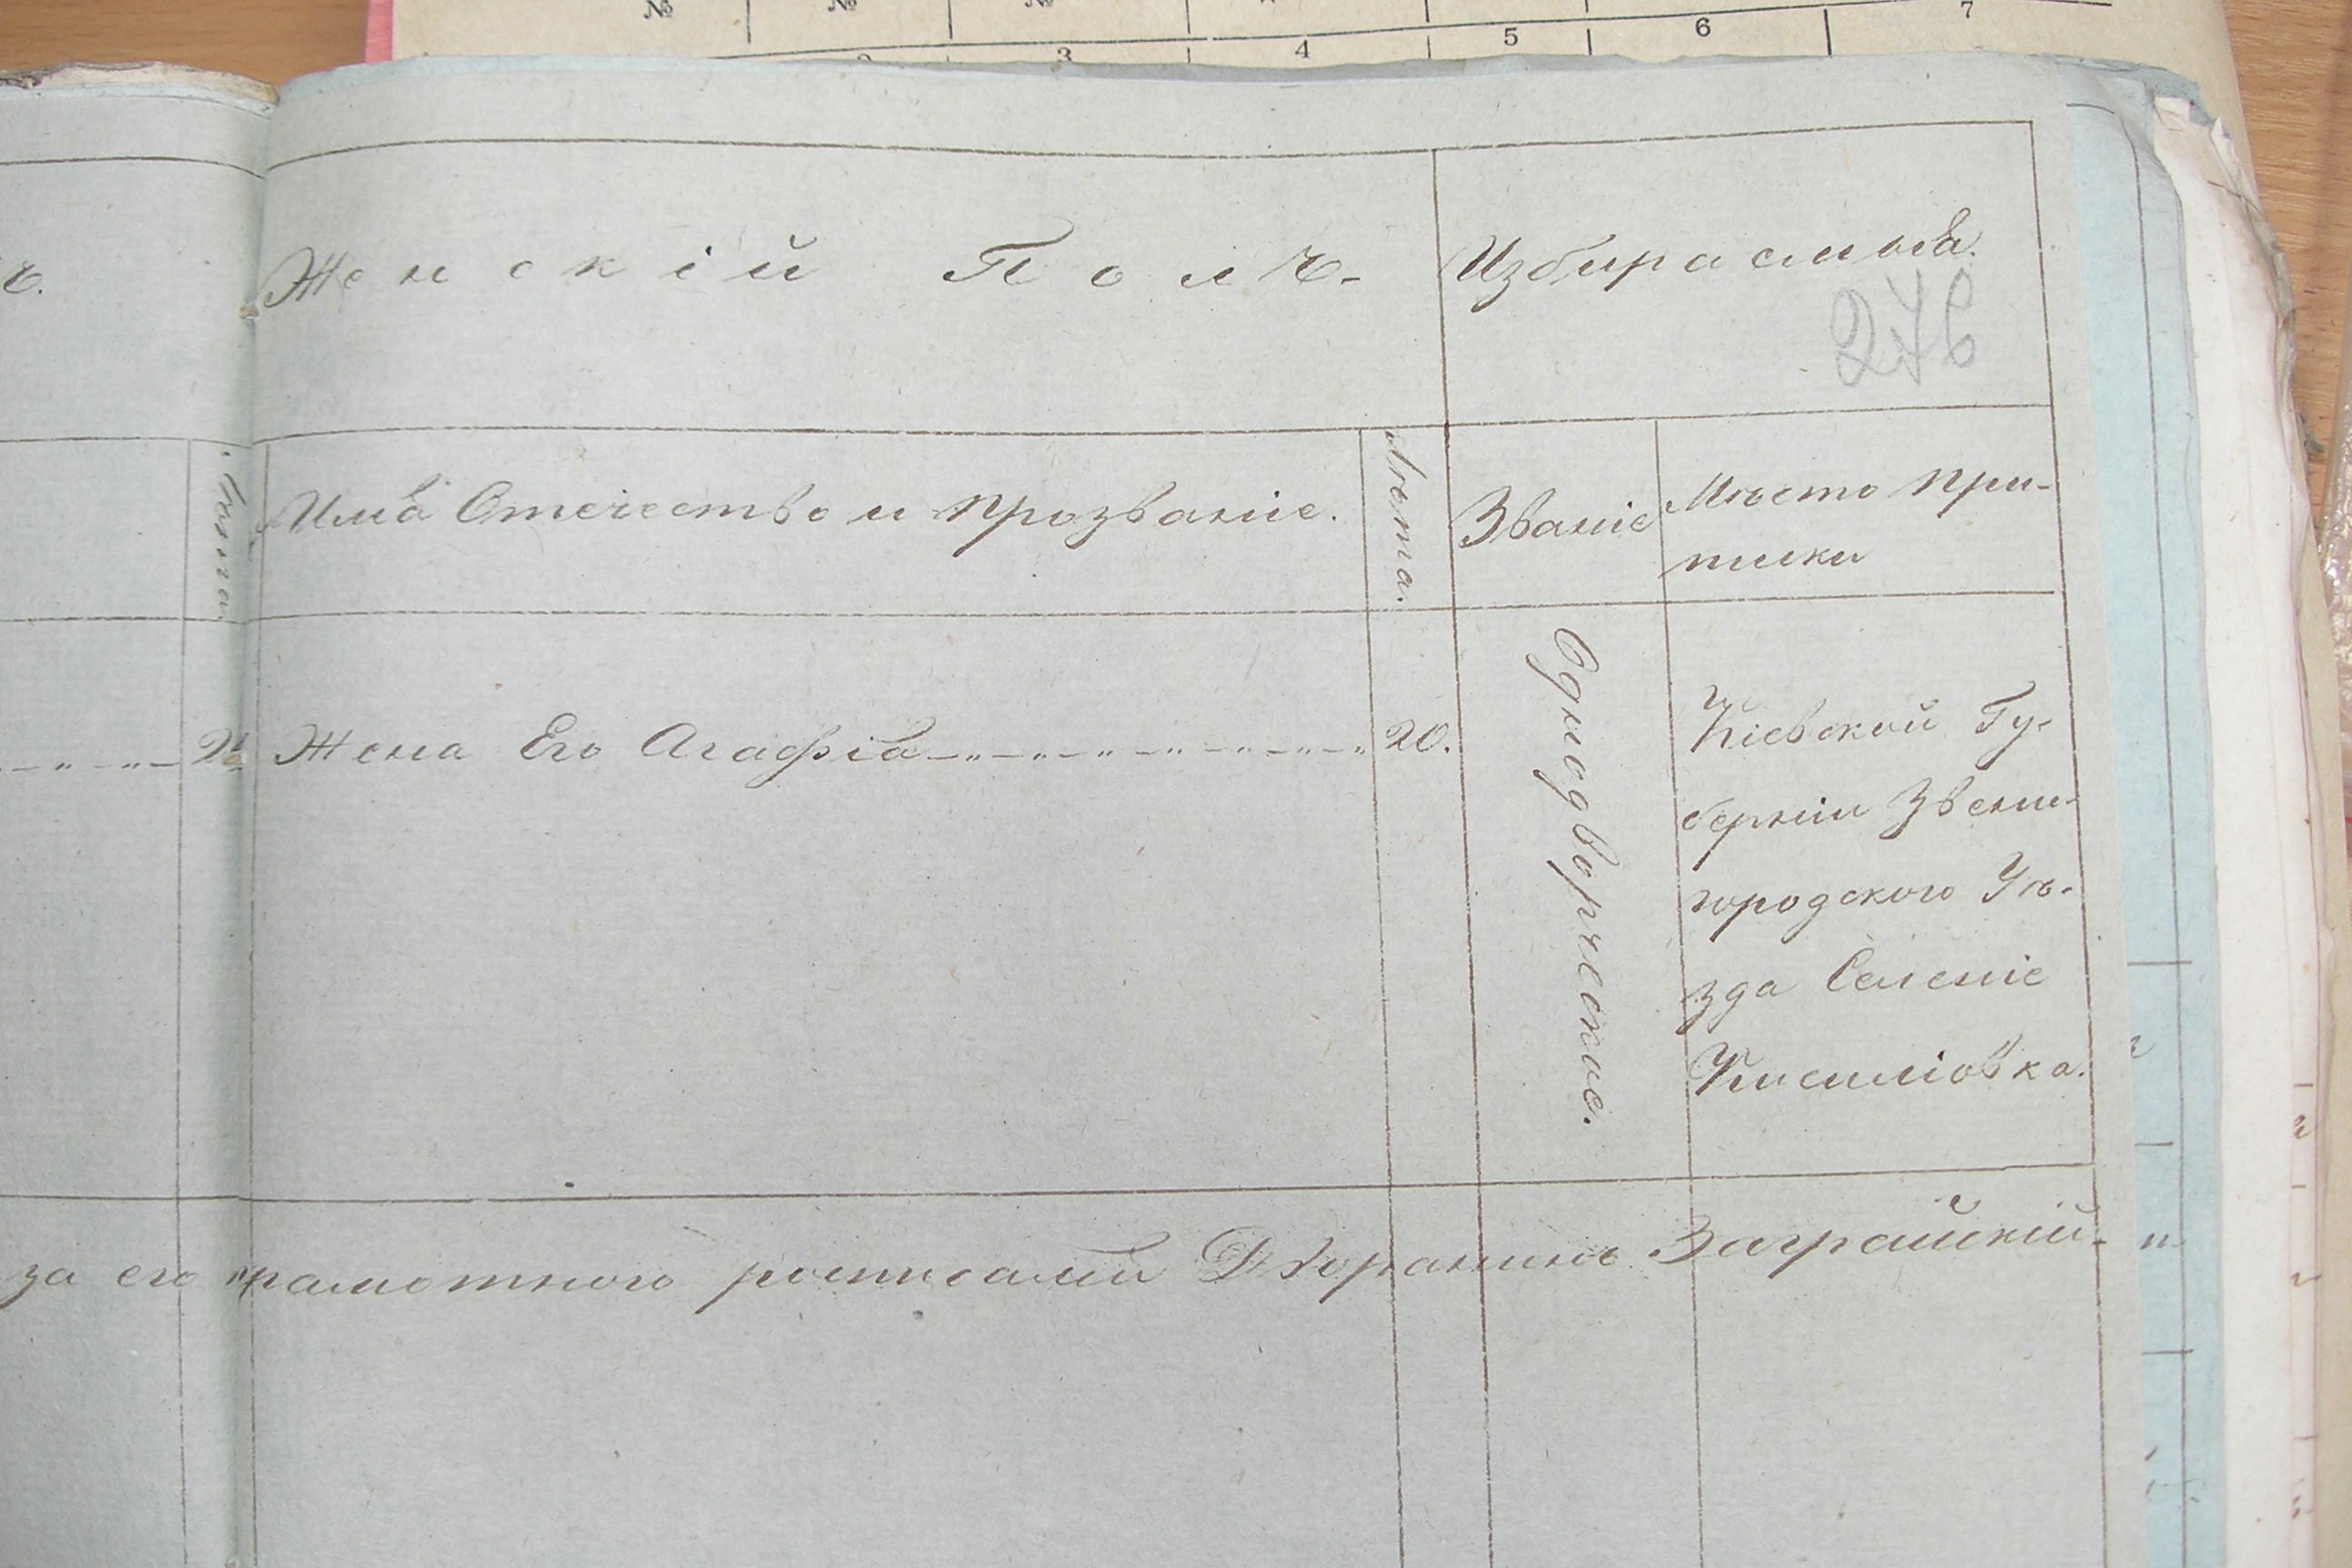 № № №
2 3 4 5 6 7
ъ. Женскій Полъ. Избираемыя.
276
Лѣта. Имя Отечество и прозваніе. Лѣта. Званіе Мѣсто при-
писки
Жена Его Агафія 20. Однодворческое. Кіевской Гу-
берніи Звени-
городского Уѣ-
зда Селеніе
Кисиліовка.
за его росписался Дворянинъ